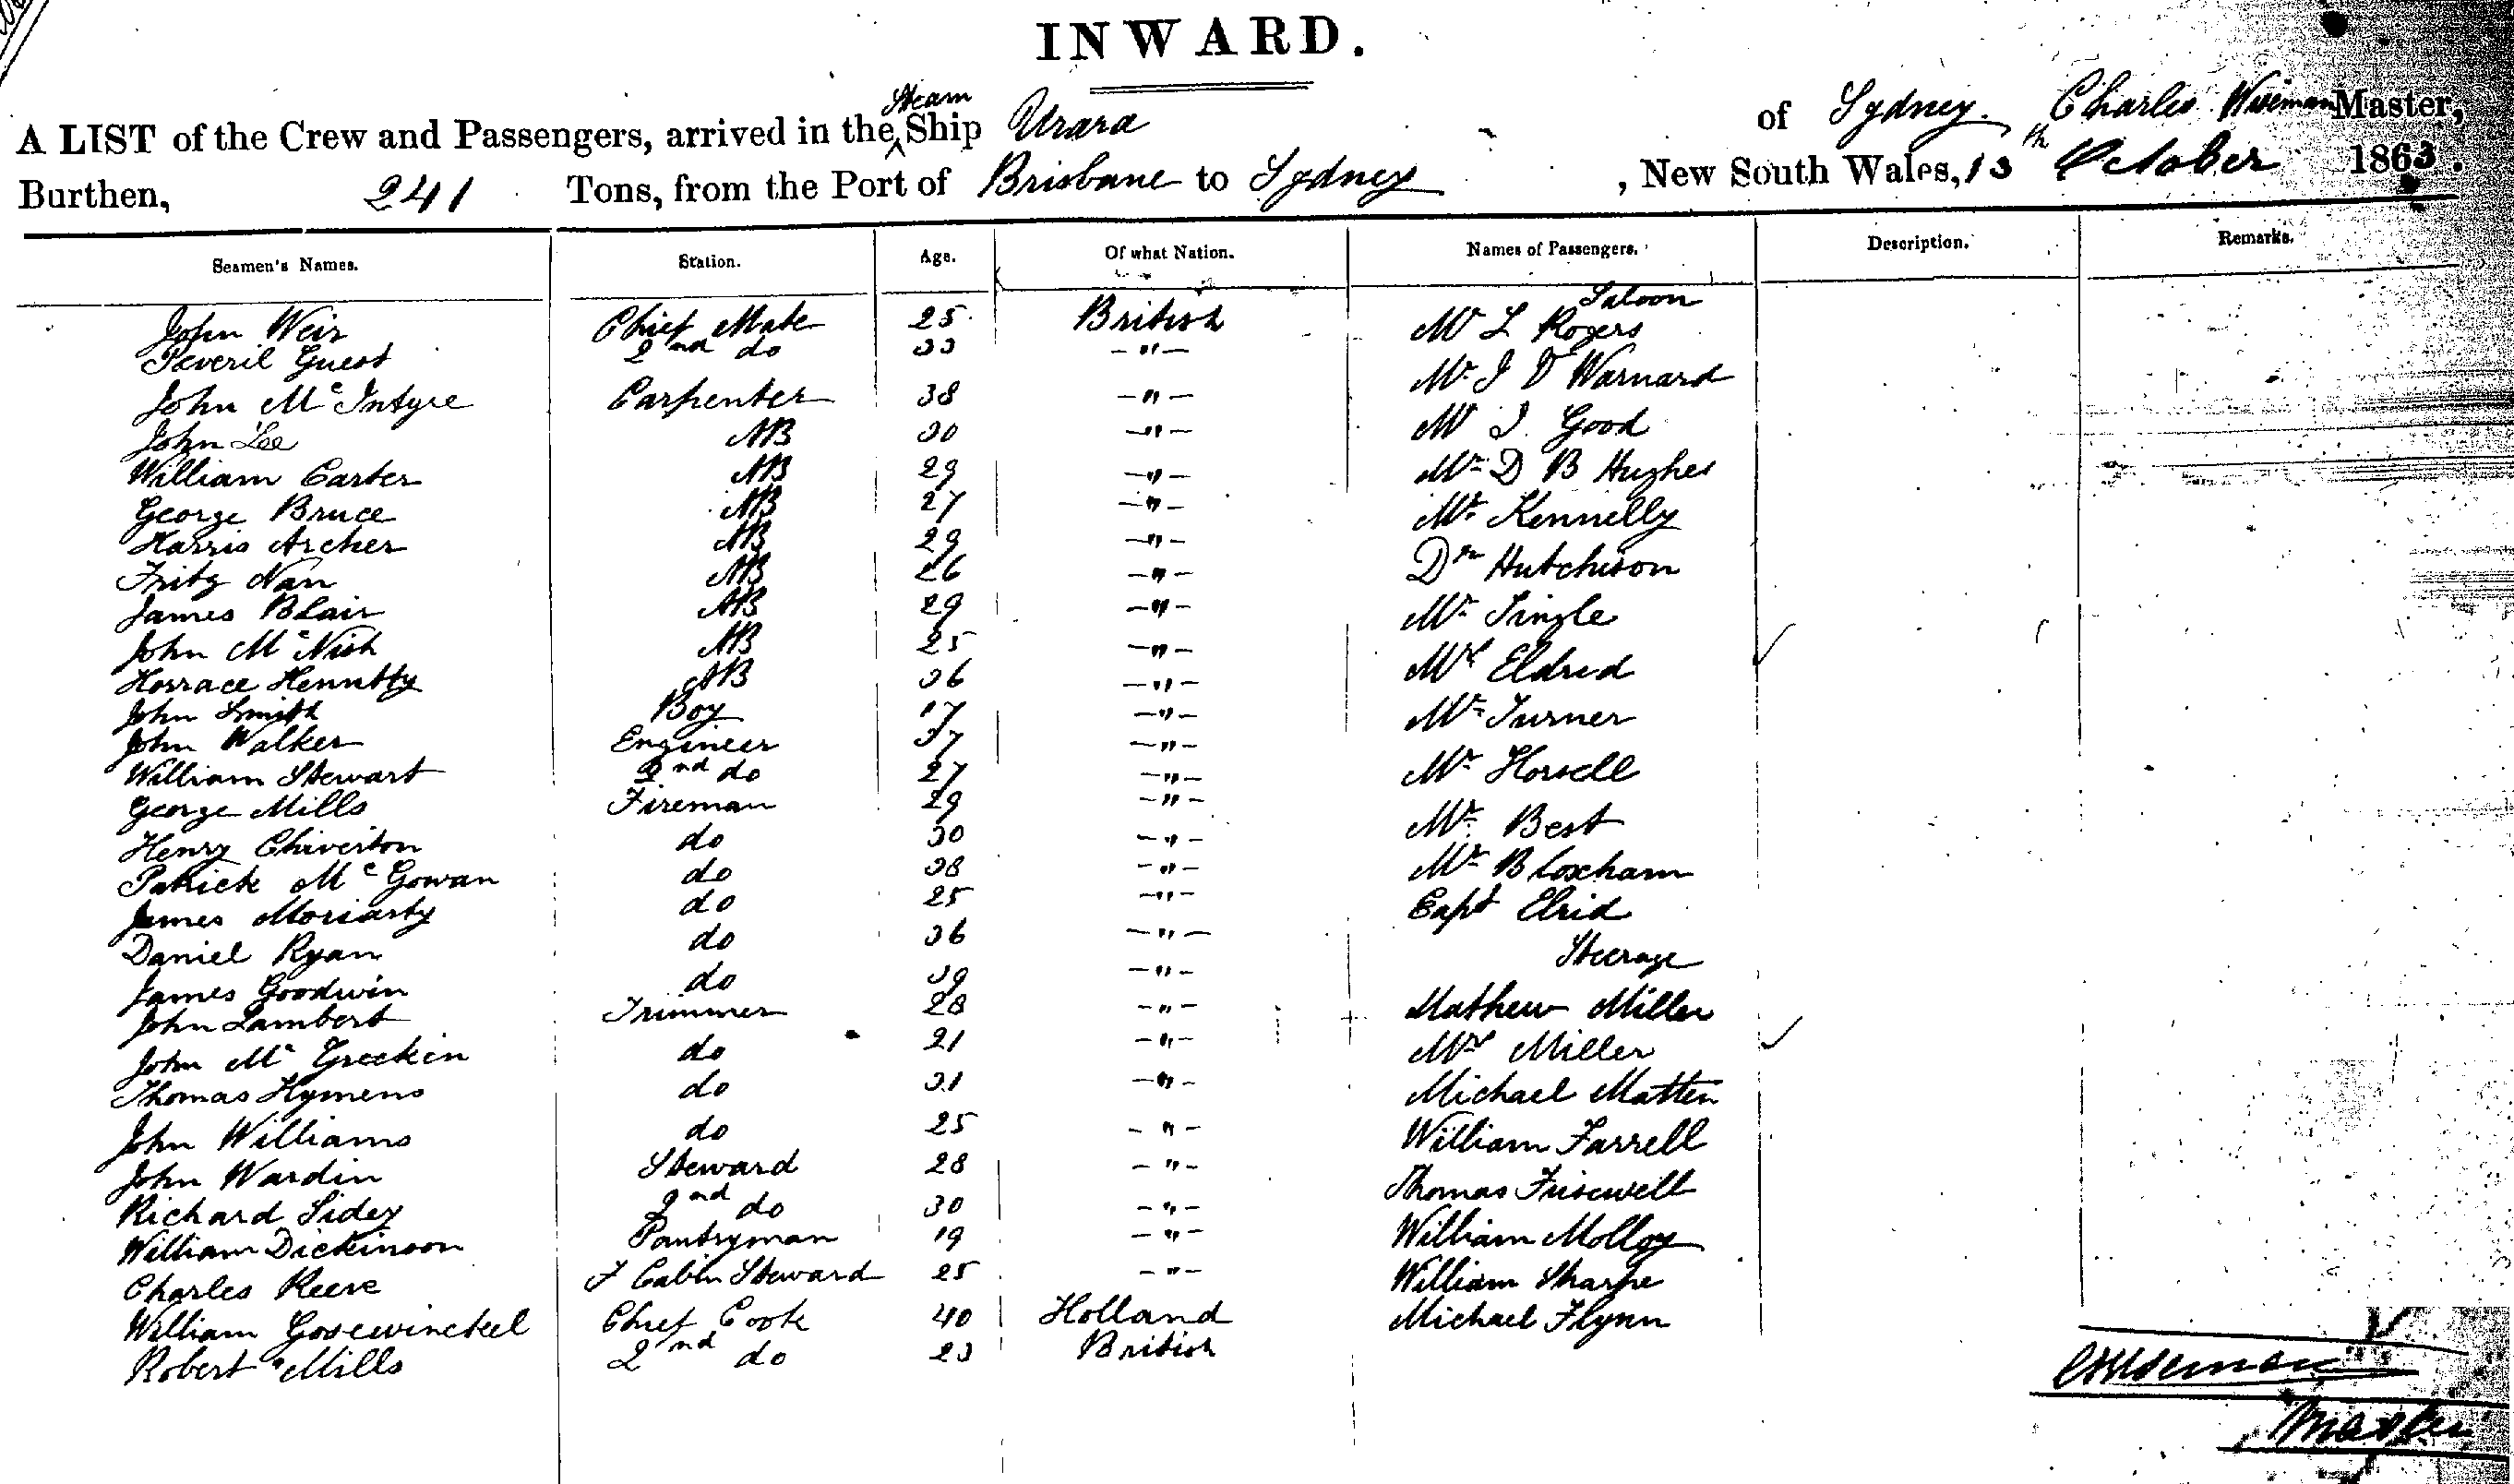 INWARD.
A LIST of the Crew and Passengers, arrived in the Steam Ship Urara of Sydney, Charles Wiseman Master,
Burthen, 241 Tons, from the Port of Brisbane to Sydney, New South Wales, 13th October 1863.
Seamen's Names. Station. Age. Of what Nation. Names of Passengers. Description. Remarks.
Saloon
John Weir Chief Mate 25 British Mr L Rogers
Peveril Guest 2nd do 33 — " —
Mr J V Warnard
John McIntyre Carpenter 38 — " —
John Lee AB 30 — " — Mr J Good
William Carter AB 29 — " — Mr D B Hughes
George Bruce AB 27 — " — Mr Kennelly
Harris Archer AB 29 — " —
Fritz Nan AB 26 — " — Dr Hutchison
James Blair AB 29 — " — Mr Single
John McNish AB 25 — " —
Horrace Hennutty AB 36 — " — Mrs Eldred
John Smith Boy 17 — " — Mr Turner
John Walker Engineer 37 — " —
William Stewart 2nd do 27 — " — Mr Howell
George Mills Fireman 29 — " —
Mr Best
Henry Chiverton do 30 — " —
Patrick McGowan do 38 — " — Mr Bloxham
James Moriarty do 25 — " — Capt Elrid
Daniel Ryan do 36 — " — Steerage
James Goodwin do 39 — " —
John Lambert Trimmer 28 — " — Mathew Miller
John McGreckin do 21 — " — Mrs Miller
Thomas Hymens do 31 — " — Michael Matten
John Williams do 25 — " — William Farrell
John Wardin Steward 28 — " —
Richard Sidey 2nd do 30 — " — Thomas Frisewell
William Dickinson Pantryman 19 — " — William Molloy
Charles Reeve F Cabin Steward 25 — " — William Sharpe
William Gosewinckel Chief Cook 40 Holland Michael Flynn
Robert Mills 2nd do 23 British
CWiseman
Master